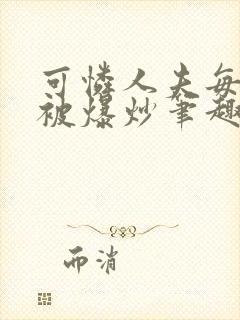 可怜人夫每
被爆炒笔趣
而消